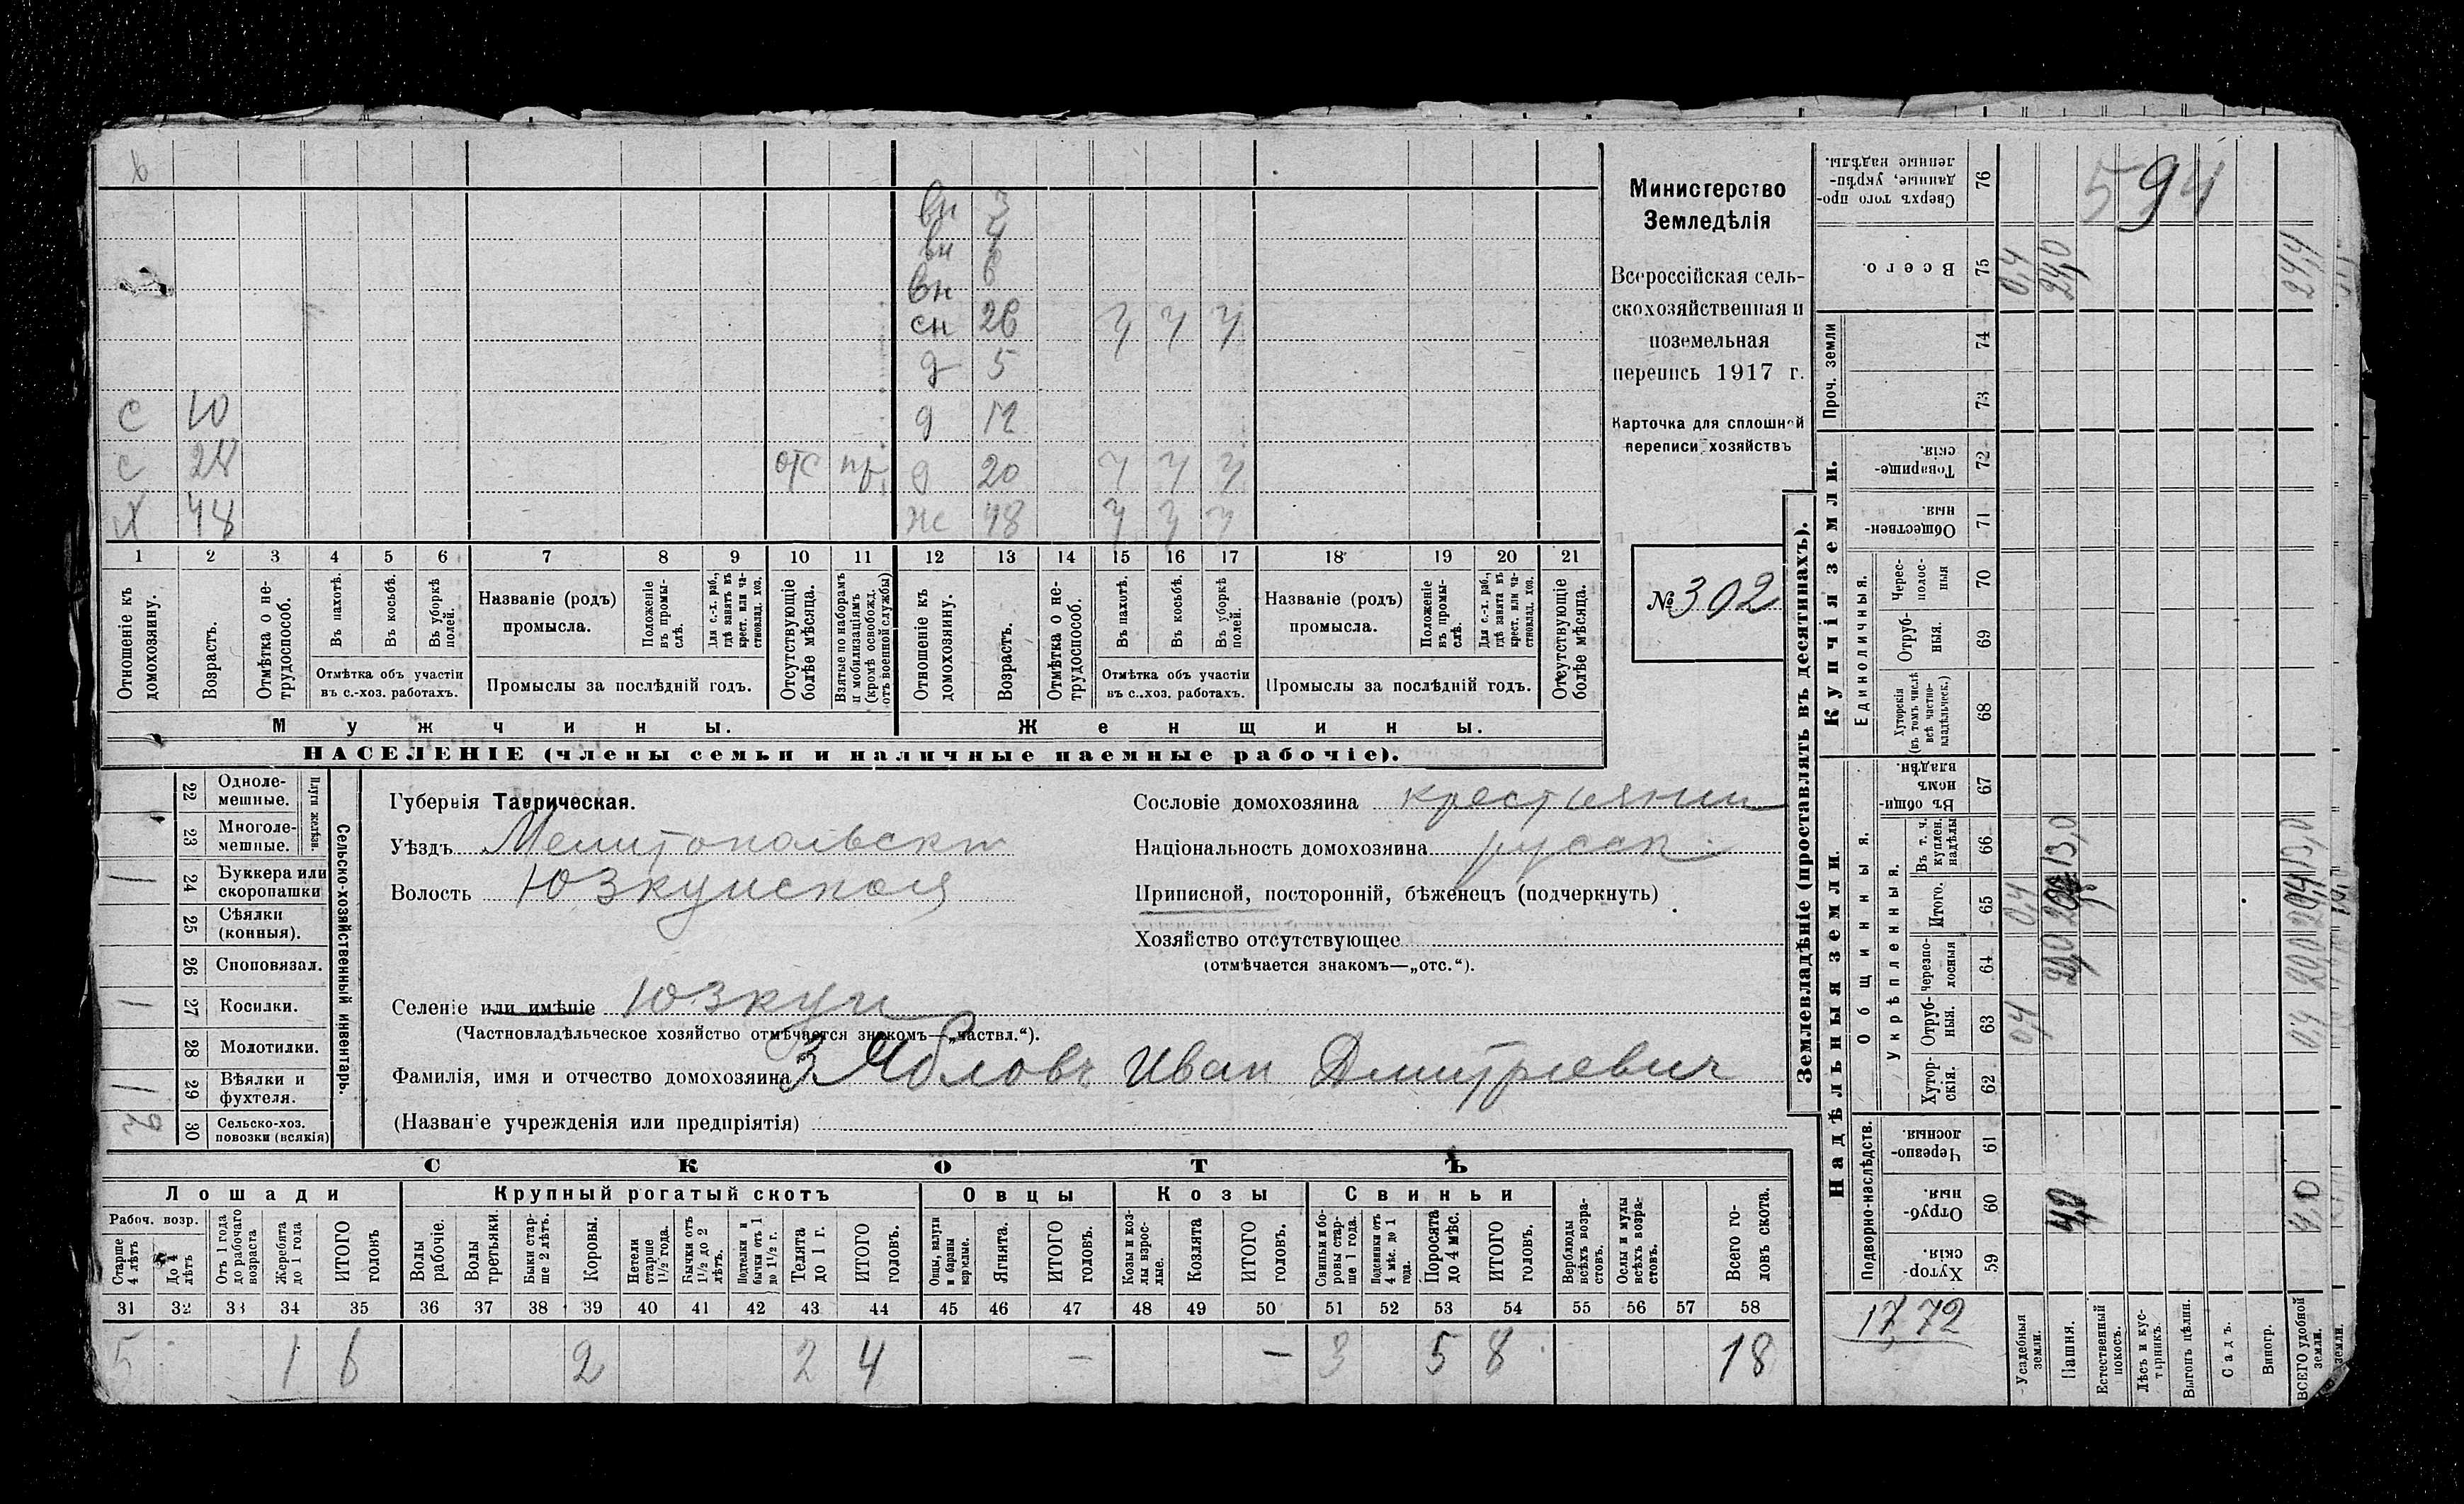 вн 3
вн 4
вн 6
сн 26 У У У
д 5
С 10 д 12
с 28 отс д 20 У У У
Х 48 ж 48 У У У
1 2 3 4 5 6 7 8 9 10 11 12 13 14 15 16 17 18 19 20 21
Отношеніе къ домохозяину.
Возрастъ.
Отмѣтка о не-
трудоспособ.
Въ пахотѣ.
Въ косьбѣ.
Въ уборкѣ полей.
Отмѣтка объ участіи
въ с.-хоз. работахъ.
Названіе (родъ)
промысла.
Положеніе въ промы-
слѣ.
Для с.-х. раб., гдѣ занятъ въ крест. или ча-
стновлад. хоз.
Промыслы за послѣдній годъ.
Отсутствующіе болѣе мѣсяца.
Взятые по наборамъ и мобилизаціямъ (кромѣ освобожд. отъ военной службы)
Отношеніе къ домохозяину.
Возрастъ.
Отмѣтка о не-
трудоспособ.
Въ пахотѣ.
Въ косьбѣ.
Въ уборкѣ полей.
Отмѣтка объ участіи
въ с..хоз. работахъ.
Названіе (родъ)
промысла.
Положеніе въ промы-
слѣ.
Для с.-х. раб., гдѣ занята въ крест. или ча-
стновлад. хоз.
Промыслы за послѣдній годъ.
Отсутствующіе болѣе мѣсяца.
Мужчины. Женщины.
НАСЕЛЕНІЕ (члены семьи и наличные наемные рабочіе).
Министерство
Земледѣлія
Всероссійская сель-
скохозяйственная и
поземельная
перепись 1917 г.
Карточка для сплошной
переписи хозяйствъ
№ 302
Сельско-хозяйственный инвентарь.
Плуги желѣзн.
22 Одноле-
мешные.
23 Многоле-
мешные.
1 24 Буккера или
скоропашки
25 Сѣялки
(конныя).
26 Споповязал.
1 27 Косилки.
28 Молотилки.
1 29 Вѣялки и
фухтеля.
2 30 Сельско-хоз.
повозки (всякія)
Губернія Таврическая.
Уѣздъ Мелитопольскій
Волость Юзкуйская
Селеніе или имѣніе Юзкуи
(Частновладѣльческое хозяйство отмѣчается знакомъ—„частвл.“).
Фамилія, имя и отчество домохозяина Иван Дмитріевич
(Названіе учрежденія или предпріятія)
Сословіе домохозяина крестьянин
Національность домохозяина русак
Приписной, посторонній, бѣженецъ (подчеркнуть)
Хозяйство отсутствующее
(отмѣчается знакомъ—„отс.“).
СКОТЪ
Лошади Крупный рогатый скотъ Овцы Козы Свиньи
Рабоч. возр.
Старше 4 лѣтъ
До 4 лѣтъ
Отъ 1 года до рабочаго возраста
Жеребята до 1 года
ИТОГО головъ
Волы рабочіе.
Волы третьяки.
Быки стар-
ше 2 лѣтъ.
Коровы.
Нетели старше 1½ года.
Бычки отъ 1½ до 2 лѣтъ.
Подтелки и бычки отъ 1 до 1½ г.
Телята до 1 г.
ИТОГО головъ.
Овцы, валухи и бараны взрослые.
Ягнята.
ИТОГО головъ.
Козы и коз-
лы взрос-
лые.
Козлята
ИТОГО головъ.
Свиньи и бо-
ровы стар-
ше 1 года.
Подсвинки отъ 4 мѣс. до 1 года.
Поросята до 4 мѣс.
ИТОГО головъ.
Верблюды всѣхъ возра-
стовъ.
Ослы и мулы всѣхъ возра-
стовъ.
Всего го-
ловъ скота.
31 32 33 34 35 36 37 38 39 40 41 42 43 44 45 46 47 48 49 50 51 52 53 54 55 56 57 58
5 1 6 2 2 4 – – 3 5 8 18
Землевладѣніе (проставлять въ десятинахъ).
Надѣльныя земли.
Купчія земли.
Проч. земли
Подворно-наслѣдств.
Общинныя.
Укрѣпленныя.
Единоличныя.
Сверхъ того про-
данные, укрѣп-
ленные надѣлы. 76
594
Всего. 75 0,4 24,0 24,4
74
73
Товарище-
скія. 72
Обществен-
ныя. 71
Черес-
полос-
ныя 70
Отруб-
ныя. 69
Хуторскія (въ томъ числѣ всѣ частно-
владѣльческ.) 68
Въ общин-
номъ владѣн. 67
Въ т. ч. куплен. надѣлы 66 13,0 13,0
Итого. 65 0,4
Черезпо-
лосныя 64 20,0
Отруб-
ныя. 63 0,4 0,4
Хутор-
скія. 62
Черезпо-
лосныя. 61
Отруб-
ныя. 60 4,0 4,0
Хутор-
скія. 59
17,72
Усадебныя земли.
Пашня.
Естественный покосъ.
Лѣсъ и кус-
тарникъ.
Выгонъ цѣлин.
Садъ.
Виногр.
ВСЕГО удобной земли.
земли.